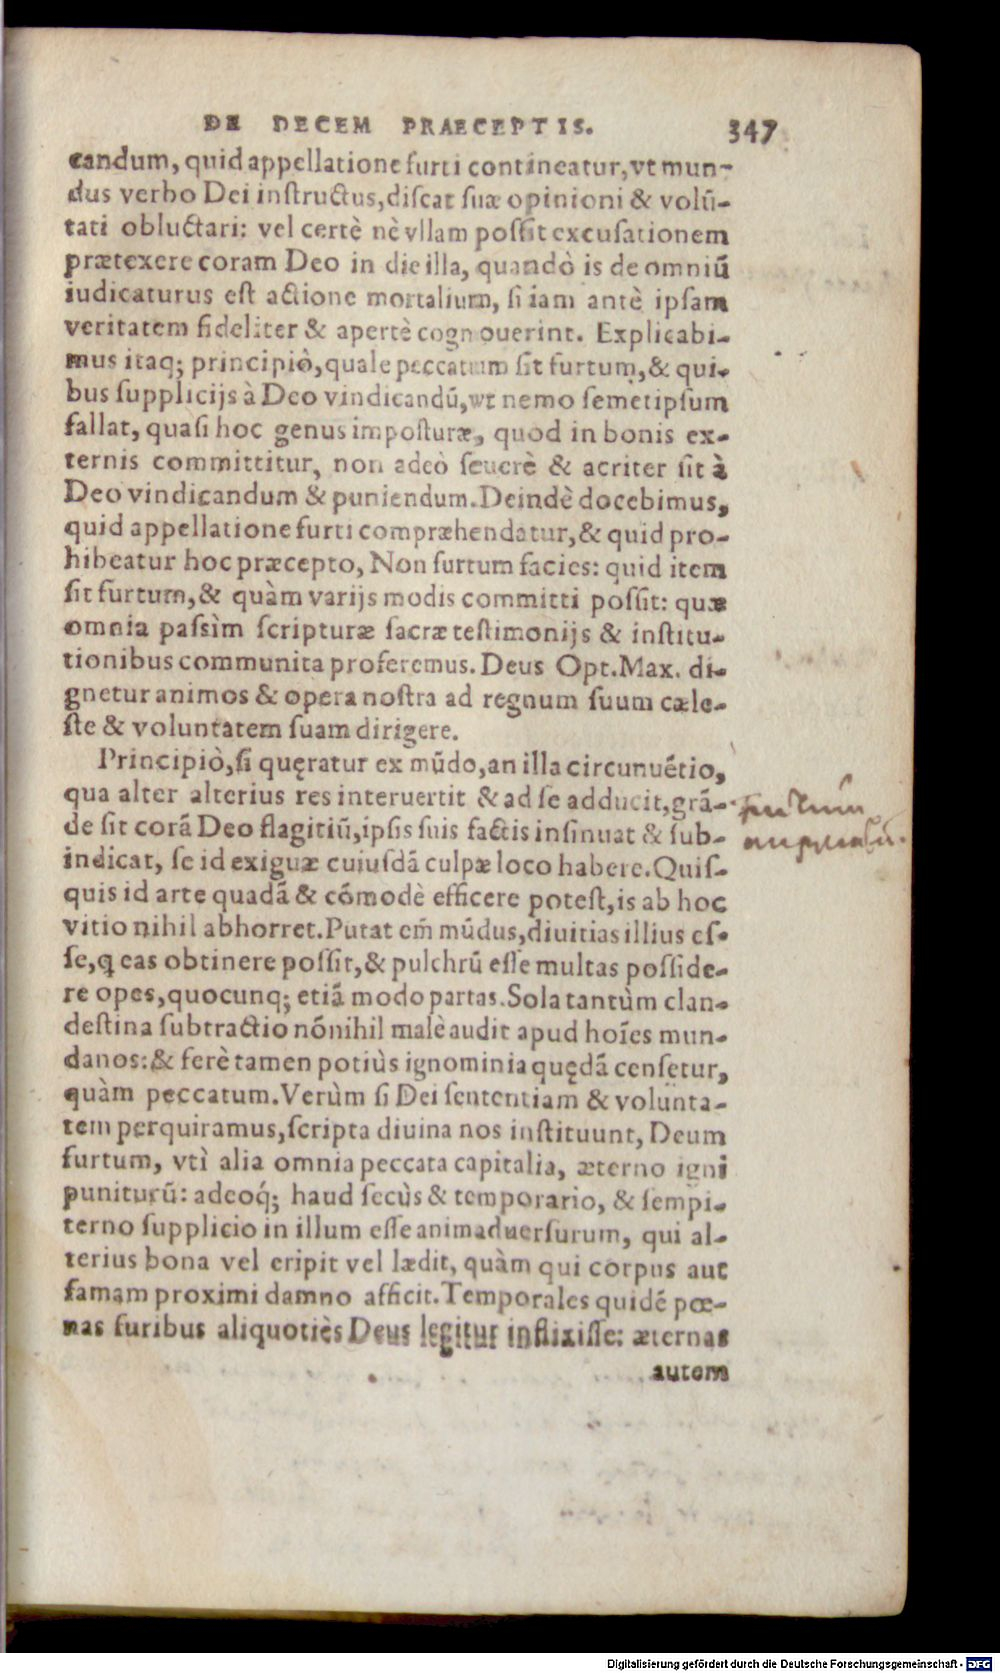 DE DECEM PRAECEPTIS. 347
candum, quid appellatione furti contineatur, vt mun-
dus verbo Dei instructus, discat suæ opinioni & volū-
tati obluctari: vel certè nè vllam possit excusationem
prætexere coram Deo in die illa, quandò is de omniū
iudicaturus est actione mortalium, si iam antè ipsam
veritatem fideliter & apertè cognouerint. Explicabi-
mus itaq; principiò, quale peccatum sit furtum, & qui-
bus supplicijs à Deo vindicandū, vt nemo semetipsum
fallat, quasi hoc genus imposturæ, quod in bonis ex-
ternis committitur, non adeò seuerè & acriter sit à
Deo vindicandum & puniendum. Deindè docebimus,
quid appellatione furti compræhendatur, & quid pro-
hibeatur hoc præcepto, Non furtum facies: quid item
sit furtum, & quàm varijs modis committi possit: quæ
omnia passìm scripturæ sacræ testimonijs & institu-
tionibus communita proferemus. Deus Opt. Max. di-
gnetur animos & opera nostra ad regnum suum cæle-
ste & voluntatem suam dirigere.
Principiò, si quęratur ex mūdo, an illa circunuētio,
qua alter alterius res interuertit & ad se adducit, grā-
de sit corā Deo flagitiū, ipsis suis factis insinuat & sub-
indicat, se id exiguæ cuiusdā culpæ loco habere. Quis-
quis id arte quadā & cōmodè efficere potest, is ab hoc
vitio nihil abhorret. Putat em̄ mūdus, diuitias illius es-
se, q eas obtinere possit, & pulchrū esse multas posside-
re opes, quocunq; etiā modo partas. Sola tantùm clan-
destina subtractio nōnihil malè audit apud hoīes mun-
danos: & ferè tamen potiùs ignominia quędā censetur,
quàm peccatum. Verùm si Dei sententiam & volunta-
tem perquiramus, scripta diuina nos instituunt, Deum
furtum, vtì alia omnia peccata capitalia, æterno igni
puniturū: adeoq́; haud secùs & temporario, & sempi-
terno supplicio in illum esse animaduersurum, qui al-
terius bona vel eripit vel lædit, quàm qui corpus aut
famam proximi damno afficit. Temporales quidē pœ-
nas furibus aliquotiès Deus legitur inflixisse: æternas
autem
furtum
Digitalisierung gefördert durch die Deutsche Forschungsgemeinschaft - DFG